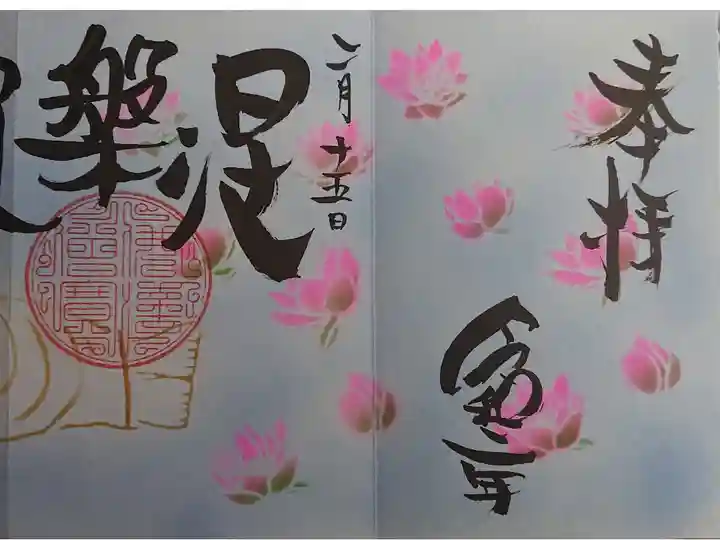 奉拝
令和二年
二月十五日
涅槃